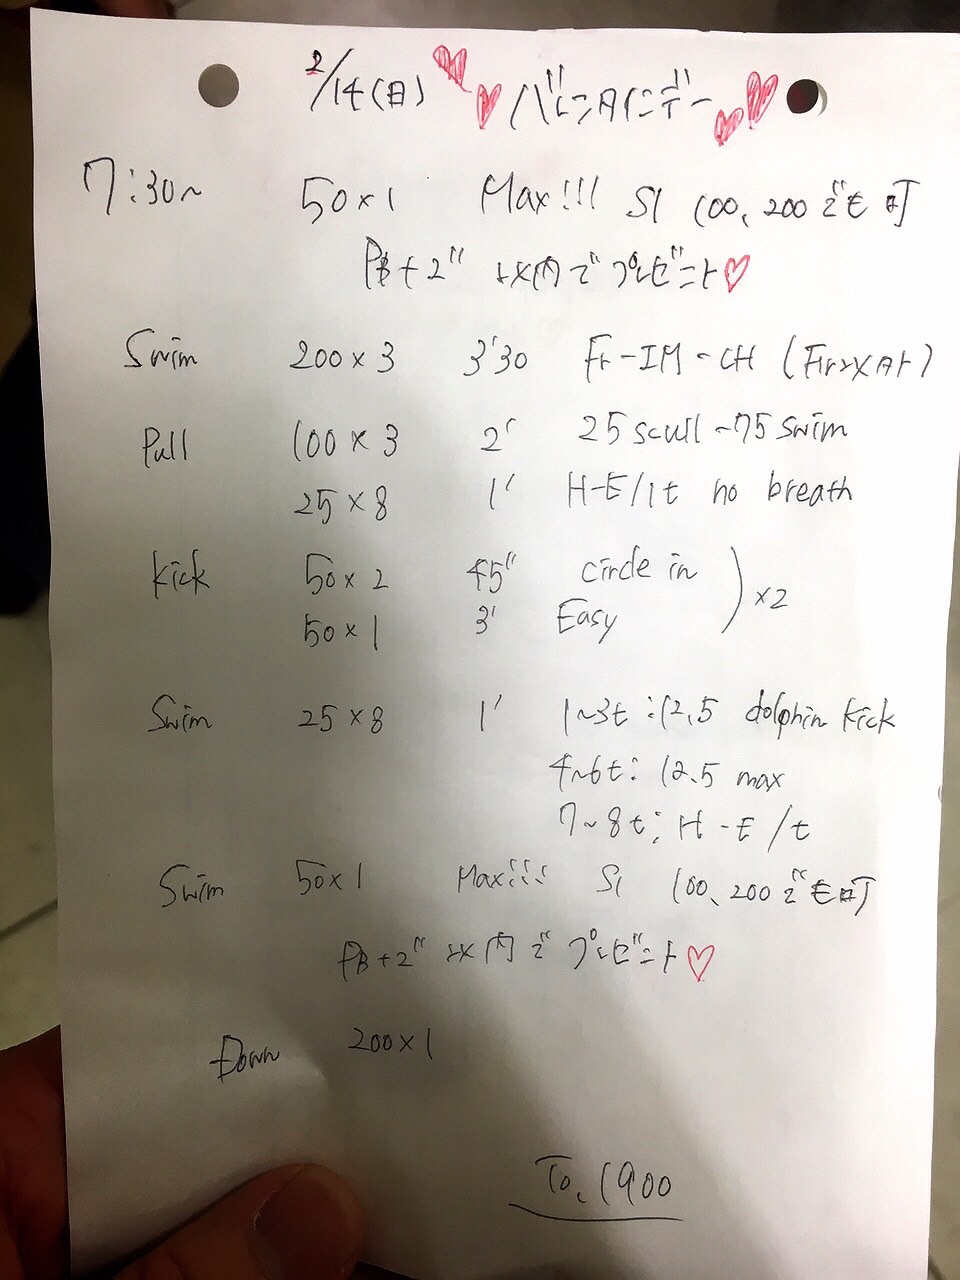 2/14(日) バレンタインデー
7:30~ 50×1 Max!!! S1 100、200でも可
PB+2" 以内でプレゼント♡
Swim 200×3 3'30 Fr-IM-CH
Pull 100×3 2' 25 scull-75 swim
25×8 1' H-E/1t no breath
Kick 50×2 45" circle in
50×1 3' Easy )×2
Swim 25×8 1' 1~3t:12.5 dolphin kick
4~6t: 12.5 max
7~8t: H-E/t
Swim 50×1 Max!!! S1 100、200でも可
PB+2" 以内でプレゼント♡
Down 200×1
To. 1900